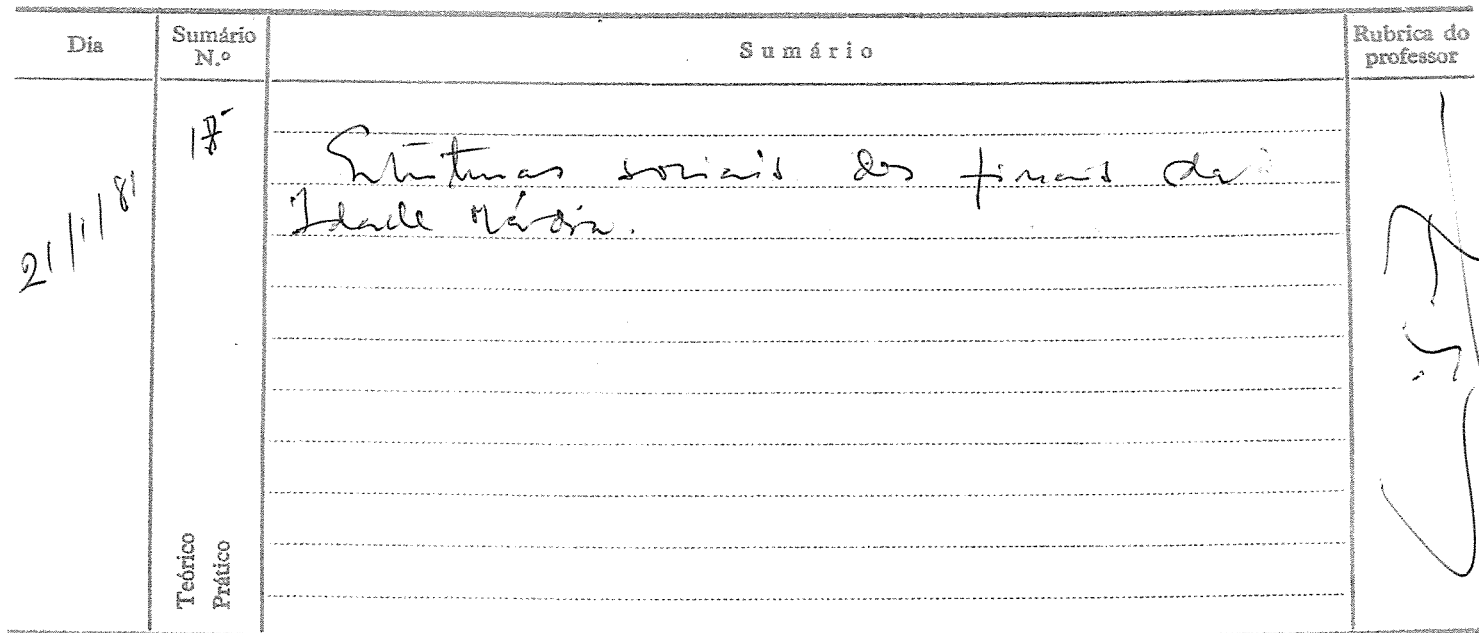 Dia
Sumário N.º
Sumário
Rubrica do professor
21/1/81
Estruturas sociais dos finais da
Idade Média.
Teórico
Prático